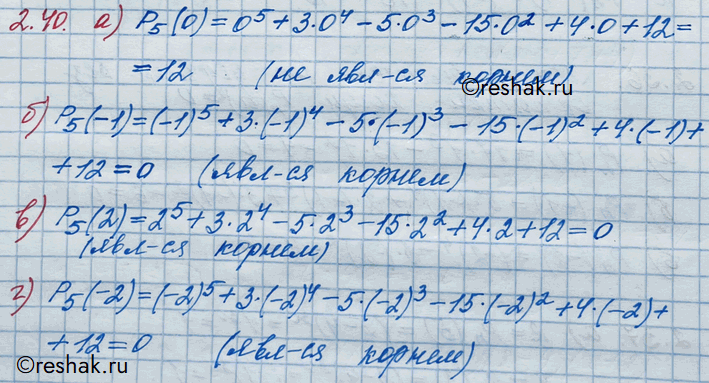 2.40. а) P₅(0) = 0⁵ + 3·0⁴ − 5·0³ − 15·0² + 4·0 + 12 =
= 12 (не явл-ся корнем)
©reshak.ru
б) P₅(−1) = (−1)⁵ + 3·(−1)⁴ − 5·(−1)³ − 15·(−1)² + 4·(−1) +
+ 12 = 0 (явл-ся корнем)
в) P₅(2) = 2⁵ + 3·2⁴ − 5·2³ − 15·2² + 4·2 + 12 = 0
(явл-ся корнем)
г) P₅(−2) = (−2)⁵ + 3·(−2)⁴ − 5·(−2)³ − 15·(−2)² + 4·(−2) +
+ 12 = 0 (явл-ся корнем)
©reshak.ru